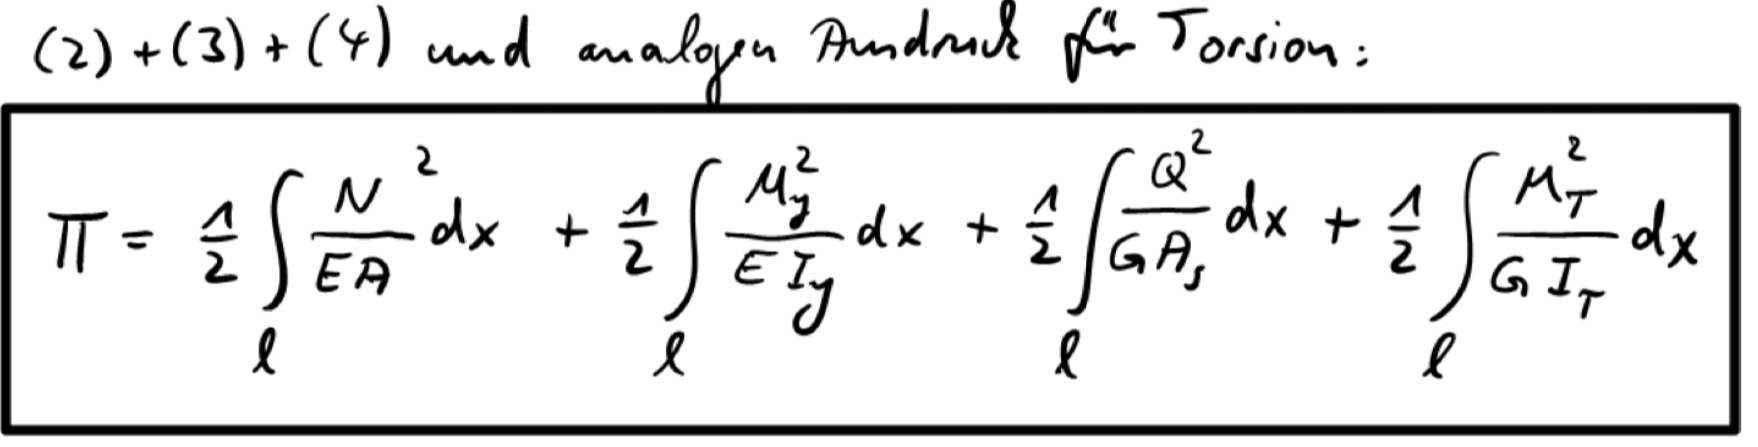 (2)+(3)+(4) und analogen Ausdruck für Torsion:
Π = 1/2 ∫_l N²/(EA) dx + 1/2 ∫_l M_y²/(E I_y) dx + 1/2 ∫_l Q²/(G A_s) dx + 1/2 ∫_l M_T²/(G I_T) dx